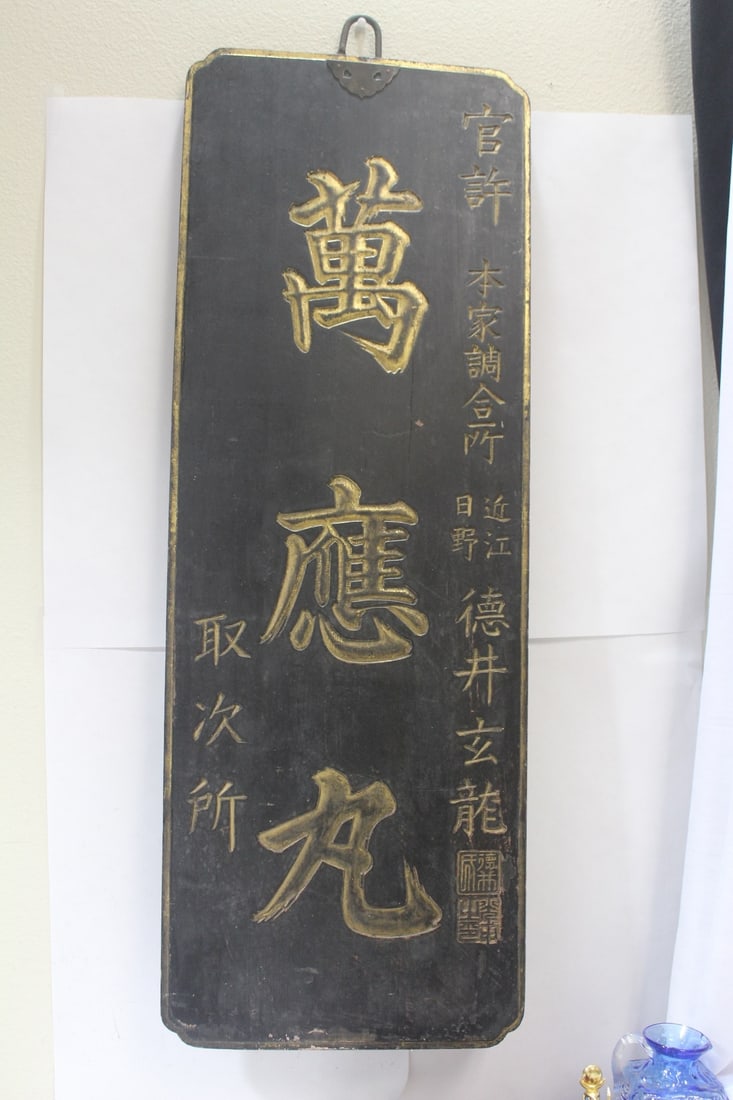 官許 本家調合所 近江日野 德井玄龍
萬應丸
取次所